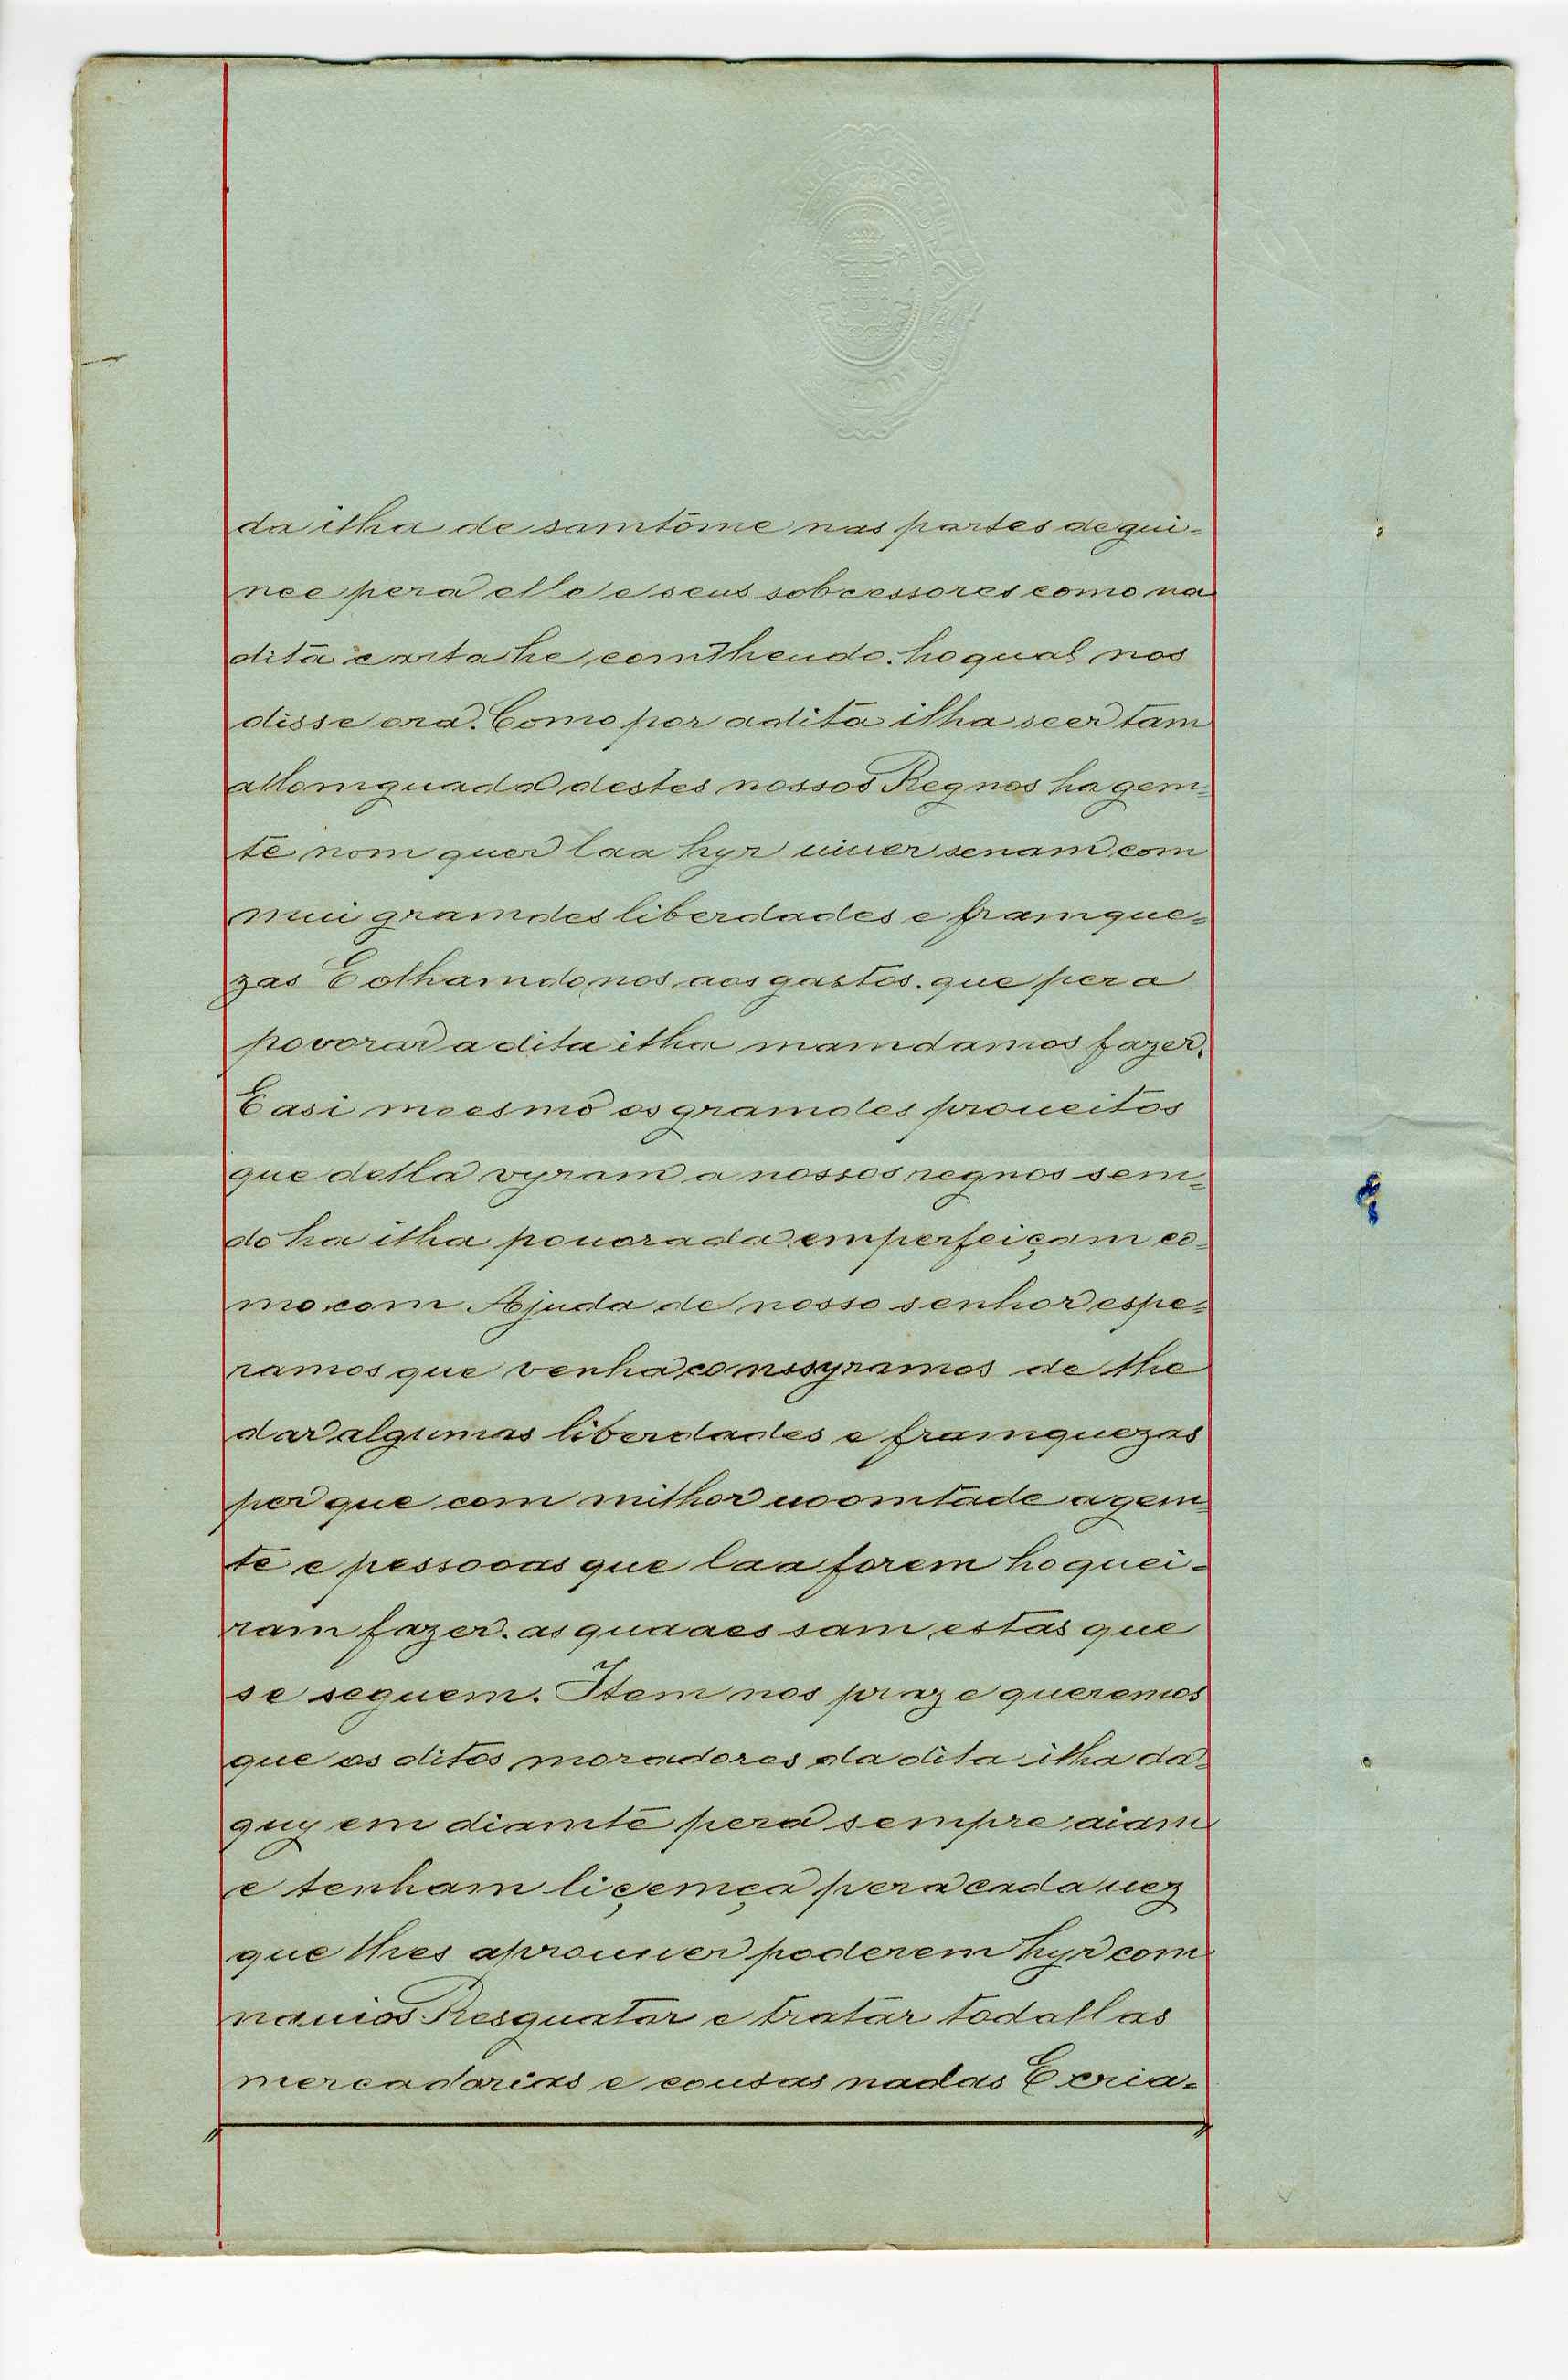 da ilha de samtome nas partes de gui=
nee pera elle e seus sobcessores como na
dita carta he comtheudo. ho qual nos
disse ora. Como por a dita ilha seer tam
allomguada destes nossos Regnos ha gem=
te nom quer laa hyr uiuer senam com
mui gramdes liberdades e framque=
zas E olhamdo nos aos gastos. que pera
povorar a dita ilha mamdamos fazer.
E asi meesmo os gramdes proueitos
que della vyram a nossos regnos sem=
do ha ilha pouorada em perfeiçam co=
mo com Ajuda de nosso senhor espe=
ramos que venha conssyramos de lhe
dar algumas liberdades e framquezas
per que com milhor uoomtade a gem=
te e pessooas que laa forem ho quei=
ram fazer. as quaaes sam estas que
se seguem. Item nos praz e queremos
que os ditos moradores da dita ilha da=
quy em diamte pera sempre aiam
e tenham liçemça pera cada uez
que lhes aprouuer poderem hyr com
nauios Resguatar e tratar todallas
mercadorias e cousas nadas E cria=